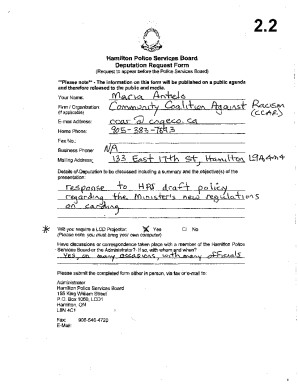 2.2
Hamilton Police Services Board
Deputation Request Form
(Request to appear before the Police Services Board)
**Please note** - The information on this form will be published on a public agenda
and therefore released to the public and media.
Your Name: Maria Antelo
Firm / Organization Community Coalition Against Racism
(if applicable) (CCAR)
E-mail Address: ccar@cogeco.ca
Home Phone: 905-383-7693
Fax No.:
Business Phone: N/A
Mailing Address: 133 East 17th St, Hamilton L9A4M4
Details of Deputation to be discussed including a summary and the objective(s) of the
presentation:
response to HPS draft policy
regarding the Minister's new regulations
on carding
* Will you require a LCD Projector: X Yes □ No
(Please note, you must bring your own computer)
Have discussions or correspondence taken place with a member of the Hamilton Police
Services Board or the Administrator? If so, with whom and when?
Yes, on many occasions, with many officials
Please submit the completed form either in person, via fax or e-mail to:
Administrator
Hamilton Police Services Board
155 King William Street
P.O. Box 1060, LCD1
Hamilton, ON
L8N 4C1
Fax: 905-546-4720
E-Mail: